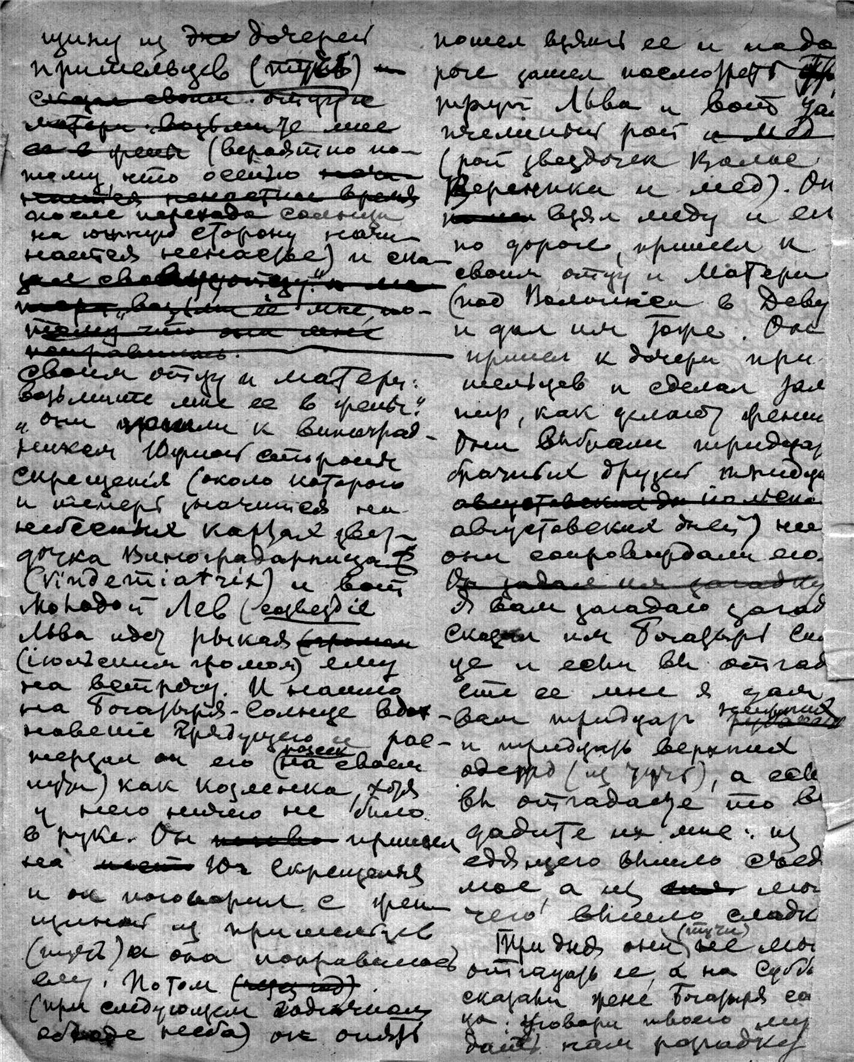 щину из дочерей
пришельцев (туч)
сказал своим отцу и
матери: возьмите мне
ее в жены (вероятно по-
тому что осенью начи-
нается ненастное время
после перехода солнца
на южную сторону начи-
нается ненастье) и ска-
зал своему отцу и ма-
тери „возьми ее мне, по-
тому что она мне
понравилась.
своим отцу и матери:
возьмите мне ее в жены".
„они пришли к виноград-
никам Южной стороны
скрещенія (около которого
и теперь значится на
небесных картах звез-
дочка Виноградарница
(Vindemiatrix) и вот
молодой Лев (созвездіе
Льва идет рыкая (громом
(іюльским громом) ему
на встречу. И нашло
на Богатыря-Солнце вдох-
новеніе Грядущего и рас-
терзал он его (на своем
пути) как козленка, хотя
у него ничего не было
в руке. Он пришел
на Юг Скрещенія
и он поговорил с жен-
щиной из пришельцев
(туч) и она понравилась
ему. Потом (через год)
(при следующем годичном
обходе неба) он опять
пошел взять ее и на до
роге зашел посмотреть
труп Льва и вот
пчелиный рой и мед
(рой звездочек Волос
Вереники и мед). Он
взял меду и ел
по дороге, пришел к
своим отцу и матери
(под Волосами в Деву
и дал им тоже. Он
пришел к дочери при-
шельцев и сделал там
пир, как делают жени
Они выбрали тридцать
брачных друзей тридца
августовских
августовских дней) и
они сопровождали его.
Он задал им загадку
Я вам загадаю загад
сказал им Богатырь Сол
це и если вы отгад
ете ее мне я дам
вам тридцать
и тридцать верхних
одежд (из туч), а если
вы отгадаете то вы
дадите их мне: из
едящего вышло съед
мое, а из мо
чего вышло сладк
Три дня они (тучи) не мо
отгадать ее, а на Суббо
сказали жене Богатыря со
ца: уговори твоего му
дать нам разгадку